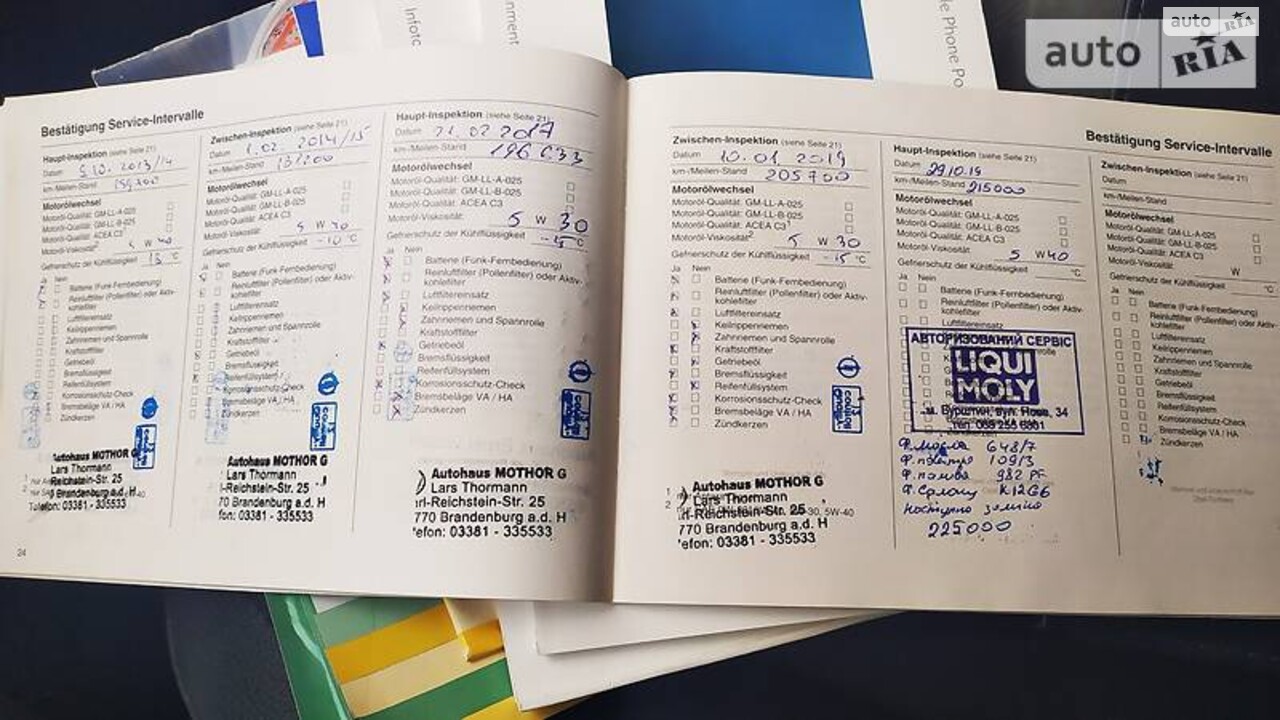 Infotc
nment
le Phone Po
auto RIA
auto RIA
Bestätigung Service-Intervalle
Haupt-Inspektion (siehe Seite 21)
Datum
km-/Meilen-Stand
Motorölwechsel
Motoröl-Qualität: GM-LL-A-025
Motoröl-Qualität: GM-LL-B-025
Motoröl-Qualität: ACEA C3
Motoröl-Viskosität W
Gefrierschutz der Kühlflüssigkeit °C
Ja Nein
Batterie (Funk-Fernbedienung)
Reinluftfilter (Pollenfilter) oder Aktiv-
kohlefilter
Luftfiltereinsatz
Keilrippenriemen
Zahnriemen und Spannrolle
Kraftstofffilter
Getriebeöl
Bremsflüssigkeit
Reifenfüllsystem
Korrosionsschutz-Check
Bremsbeläge VA / HA
Zündkerzen
Autohaus MOTHOR G
Lars Thormann
-Reichstein-Str. 25
Brandenburg a.d. H
fon: 03381 - 335533
24
Zwischen-Inspektion (siehe Seite 21)
Datum 1.02. 2014/15
km-/Meilen-Stand
Motorölwechsel
Motoröl-Qualität: GM-LL-A-025
Motoröl-Qualität: GM-LL-B-025
Motoröl-Qualität: ACEA C3
Motoröl-Viskosität W
Gefrierschutz der Kühlflüssigkeit -10 °C
Ja Nein
Batterie (Funk-Fernbedienung)
Reinluftfilter (Pollenfilter) oder Aktiv-
kohlefilter
Luftfiltereinsatz
Keilrippenriemen
Zahnriemen und Spannrolle
Kraftstofffilter
Getriebeöl
Bremsflüssigkeit
Reifenfüllsystem
Korrosionsschutz-Check
Bremsbeläge VA / HA
Zündkerzen
Autohaus MOTHOR G
Lars Thormann
-Reichstein-Str. 25
70 Brandenburg a.d. H
fon: 03381 - 335533
Haupt-Inspektion (siehe Seite 21)
Datum 21.02 2017
km-/Meilen-Stand 196 033
Motorölwechsel
Motoröl-Qualität: GM-LL-A-025
Motoröl-Qualität: GM-LL-B-025
Motoröl-Qualität: ACEA C3
Motoröl-Viskosität 5 W 30
Gefrierschutz der Kühlflüssigkeit °C
Ja Nein
Batterie (Funk-Fernbedienung)
Reinluftfilter (Pollenfilter) oder Aktiv-
kohlefilter
Luftfiltereinsatz
Keilrippenriemen
Zahnriemen und Spannrolle
Kraftstofffilter
Getriebeöl
Bremsflüssigkeit
Reifenfüllsystem
Korrosionsschutz-Check
Bremsbeläge VA / HA
Zündkerzen
Autohaus MOTHOR G
Lars Thormann
rl-Reichstein-Str. 25
770 Brandenburg a.d. H
efon: 03381 - 335533
Bestätigung Service-Intervalle
Zwischen-Inspektion (siehe Seite 21)
Datum 10.01 2019
km-/Meilen-Stand 205700
Motorölwechsel
Motoröl-Qualität: GM-LL-A-025
Motoröl-Qualität: GM-LL-B-025
Motoröl-Qualität: ACEA C3¹
Motoröl-Viskosität² 5 W 30
Gefrierschutz der Kühlflüssigkeit -15 °C
Ja Nein
Batterie (Funk-Fernbedienung)
Reinluftfilter (Pollenfilter) oder Aktiv-
kohlefilter
Luftfiltereinsatz
Keilrippenriemen
Zahnriemen und Spannrolle
Kraftstofffilter
Getriebeöl
Bremsflüssigkeit
Reifenfüllsystem
Korrosionsschutz-Check
Bremsbeläge VA / HA
Zündkerzen
Autohaus MOTHOR G
Lars Thormann
rl-Reichstein-Str. 25
-30, 5W-40
770 Brandenburg a.d. H
efon: 03381 - 335533
Haupt-Inspektion (siehe Seite 21)
Datum 29.10.19
km-/Meilen-Stand 215000
Motorölwechsel
Motoröl-Qualität: GM-LL-A-025
Motoröl-Qualität: GM-LL-B-025
Motoröl-Qualität: ACEA C3
Motoröl-Viskosität 5 W 40
Gefrierschutz der Kühlflüssigkeit °C
Ja Nein
Batterie (Funk-Fernbedienung)
Reinluftfilter (Pollenfilter) oder Aktiv-
kohlefilter
Luftfiltereinsatz
АВТОРИЗОВАНИЙ СЕРВІС
LIQUI
MOLY
34
Ф. масла 648/7
109/3
982 PF
K1266
225000
Zwischen-Inspektion (siehe Seite 21)
Datum
km-/Meilen-Stand
Motorölwechsel
Motoröl-Qualität: GM-LL-A-025
Motoröl-Qualität: GM-LL-B-025
Motoröl-Qualität: ACEA C3
Motoröl-Viskosität W
Gefrierschutz der Kühlflüssigkeit °C
Ja Nein
Batterie (Funk-Fernbedienung)
Reinluftfilter (Pollenfilter) oder Aktiv-
kohlefilter
Luftfiltereinsatz
Keilrippenriemen
Zahnriemen und Spannrolle
Kraftstofffilter
Getriebeöl
Bremsflüssigkeit
Reifenfüllsystem
Korrosionsschutz-Check
Bremsbeläge VA / HA
Zündkerzen